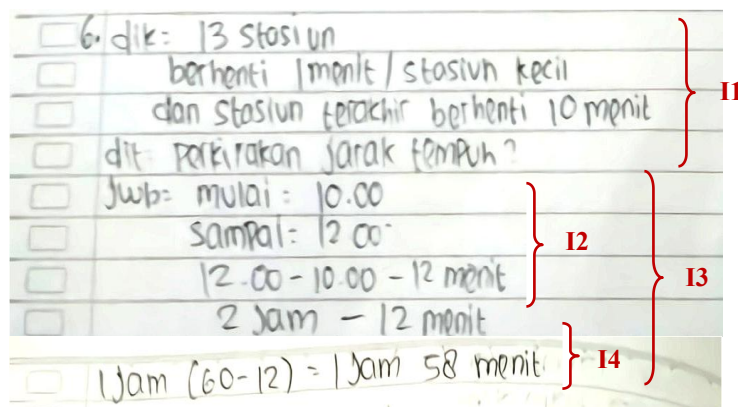 6. dik = 13 stasiun
berhenti 1 menit / stasiun kecil
dan stasiun terakhir berhenti 10 menit
dit perkirakan jarak tempuh?
Jwb = mulai = 10.00
sampai = 12 00
12.00 - 10.00 - 12 menit
2 Jam - 12 menit
1 Jam (60-12) = 1 Jam 58 menit
I1
I2
I3
I4